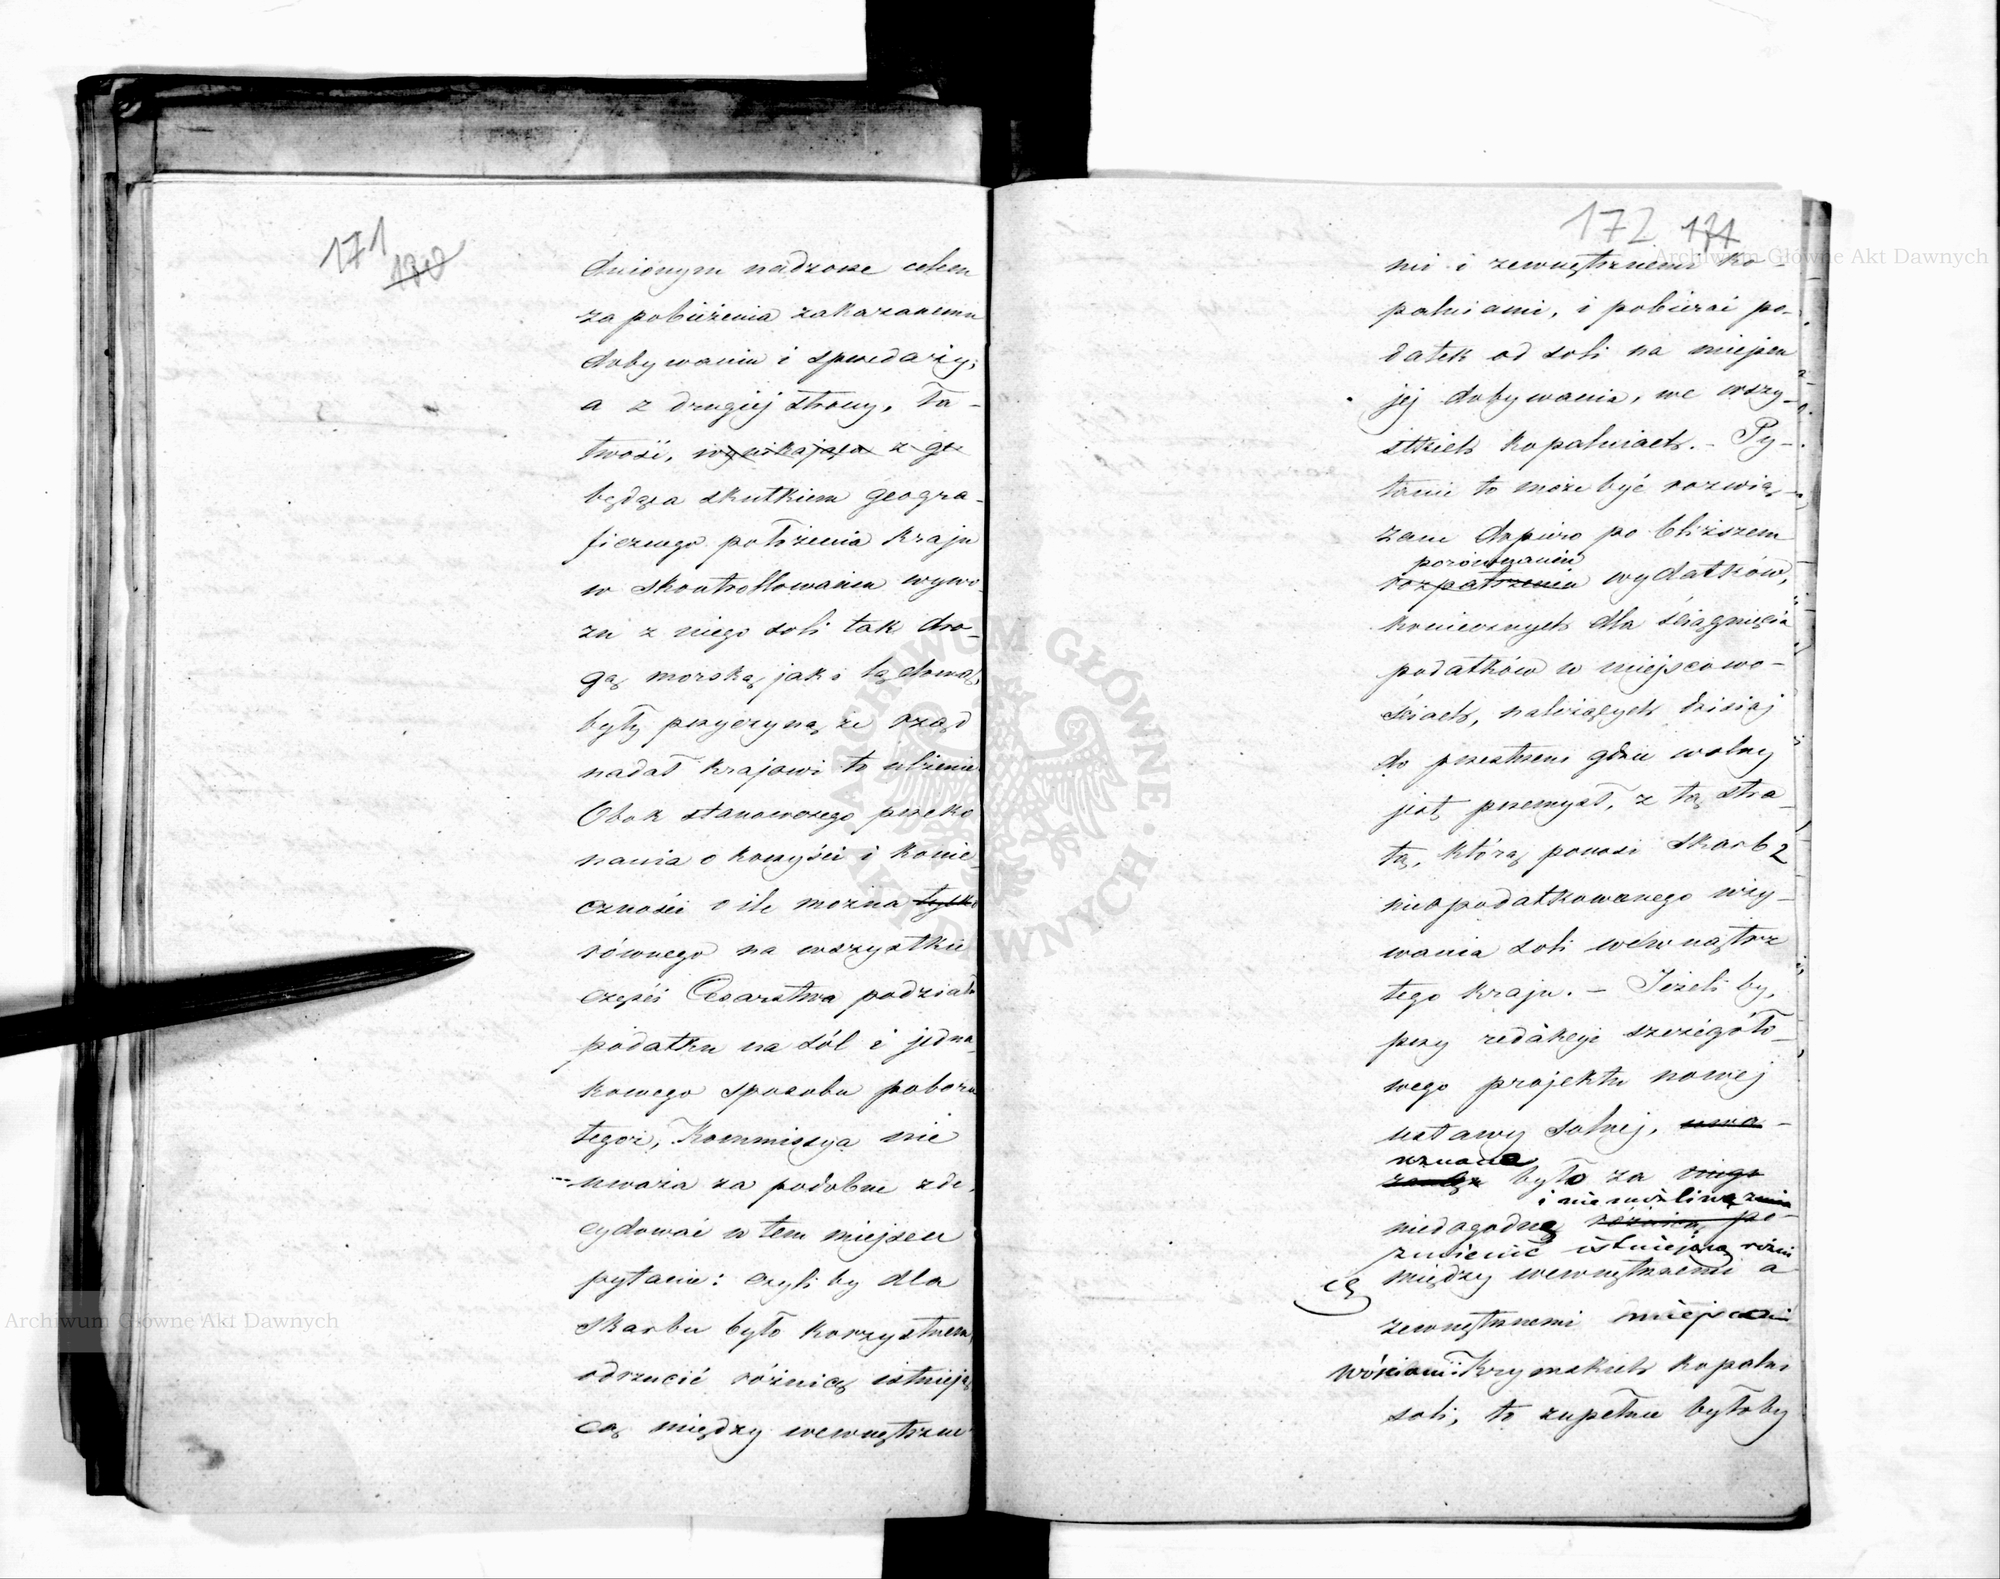 171
170
dnionym nadzorze celem
zapobieżenia zakazanemu
dobywaniu i sprzedaży;
a z drugiej strony, ła-
twość, wynikająca z ge
będąca skutkiem geogra-
ficznego położenia kraju
w skontrollowaniu wywo-
zu z niego soli tak dro-
gą morską jak i lądową,
były przyczyną że rząd
nadał krajowi to ulżenie
Obok stanowczego przeko
nania o korzyści i konie-
czności o ile można tylko
równego na wszystkie
części Cesarstwa podziału
podatku na sól i jedna-
kowego sposobu poboru
tegoż, Kommissya nie
uważa za podobne zde-
cydować w tem miejscu
pytanie: czyliby dla
skarbu było korzystnem
odrzucić różnicę istnieją
cą między wewnętrzne
172 171
mi i zewnętrznemi ko-
palniami, i pobierać po-
datek od soli na miejscu
jej dobywania, we wszy-
stkich kopalniach. – Py-
tanie to może być rozwią-
zane dopiero po bliższem
porównaniu
rozpatrzeniu wydatków,
koniecznych dla ściągnięcia
podatków w miejscowo-
ściach, należących dzisiaj
do przestrzeni gdzie wolny
jest przemysł, z tą stra-
tą, którą ponosi skarb z
nieopodatkowanego uży-
wania soli wewnątrz
tego kraju. – Jeżeli by,
przy redakcyi szczegóło-
wego projektu nowej
ustawy solnej, uwa-
uznane
było za
i nie możliwą
niedogodną różnicę po-
zmienić istniejącą różni
cę między wewnętrznemi a
zewnętrznemi miejsco
wościami Krymskich kopalni
soli, to zupełnie byłoby
Archiwum Główne Akt Dawnych
Archiwum Główne Akt Dawnych
ARCHIWUM GŁÓWNE AKT DAWNYCH